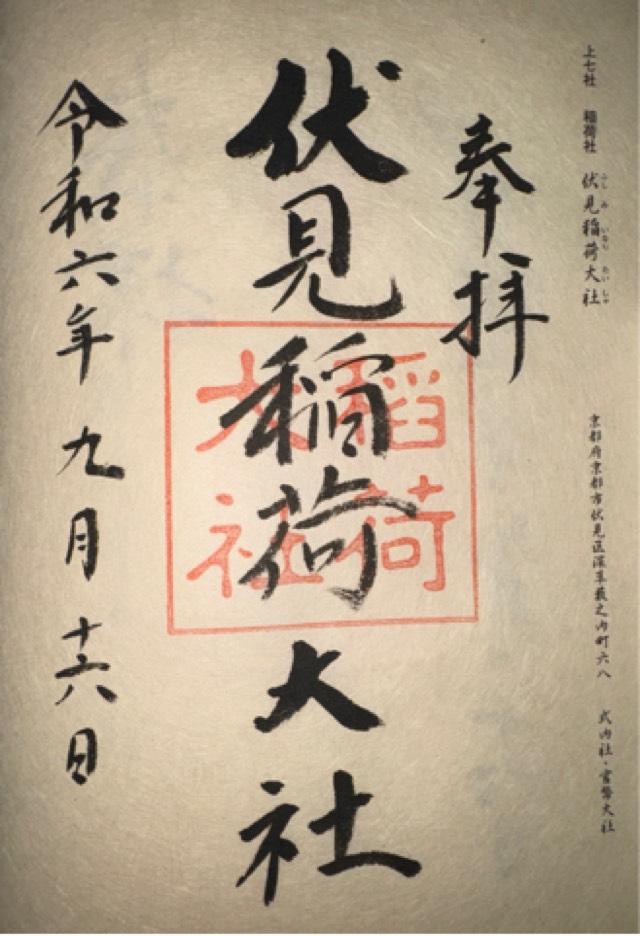 上七社 稲荷社 伏見稲荷大社
ふしみいなりたいしゃ
京都府京都市伏見区深草薮之内町六八 式内社・官幣大社
奉拝
伏見稲荷大社
稲荷
大社
令和六年九月十六日